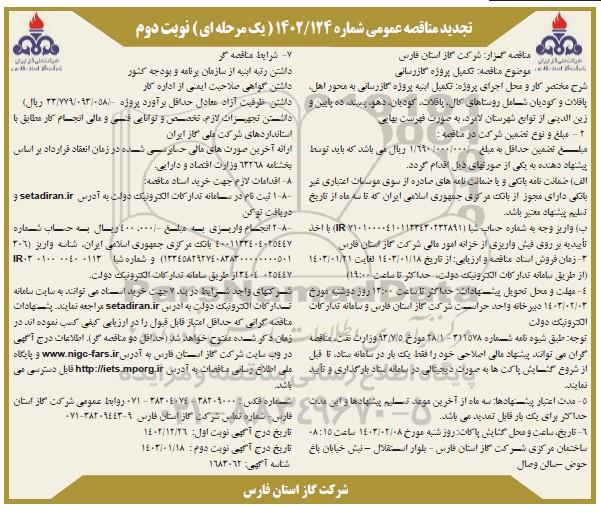 تجدید مناقصه عمومی شماره ۱۴۰۲/۱۲۴ (یک مرحله ای) نوبت دوم
مناقصه گزار: شرکت گاز استان فارس
موضوع مناقصه: تکمیل پروژه گازرسانی
شرح مختصر کار و محل اجرای پروژه: تکمیل ابنیه پروژه گازرسانی به محور اهل،
پاقلات و کودیان شامل روستاهای کال، پاقلات، کودیان، دهو، پسبند، ده پایین و
زین الدینی از توابع شهرستان لامرد، به صورت فهرست بهایی
۲ - مبلغ و نوع تضمین شرکت در مناقصه :
مبلغ تضمین حداقل به مبلغ -/۱/۶۹۰/۰۰۰/۰۰۰ ریال می باشد که باید توسط
پیشنهاد دهنده به یکی از صورتهای ذیل اقدام گردد.
الف) ضمانت نامه بانکی و یا ضمانت نامه های صادره از سوی موسسات اعتباری غیر
بانکی دارای مجوز از بانک مرکزی جمهوری اسلامی ایران که تا سه ماه از تاریخ
تسلیم پیشنهاد معتبر باشد.
ب) واریز وجه به شماره حساب شبا (IR ۷۱۰۱۰۰۰۰۴۱۰۱۱۲۳۴۳۰۲۳۲۸۹۱) با اخذ
تأییدیه بر روی فیش واریزی از خزانه امور مالی شرکت گاز استان فارس
۳- زمان فروش اسناد مناقصه و ارزیابی: از تاریخ ۱۴۰۳/۰۱/۱۸ لغایت ۱۴۰۳/۰۱/۲۱
(از طریق سامانه تدارکات الکترونیک دولت. حداکثر تا ساعت ۱۹:۰۰)
۴- مهلت و محل تحویل پیشنهادات: حداکثر تا ساعت ۱۳:۰۰ روز دوشنبه مورخ
۱۴۰۳/۰۲/۰۳ دبیرخانه واحد حراست شرکت گاز استان فارس و سامانه تدارکات
الکترونیک دولت
توجه: طبق شیوه نامه شماره ۳۱۱۵۷۸- ۲۸/۱ مورخ ۹۳/۷/۵ وزارت نفت، مناقصه
گران می توانند پیشنهاد مالی اصلاحی خود را فقط یک بار در سامانه ستاد، تا قبل
از شروع گشایش پاکت ها به صورت دیجیتالی در سامانه ستاد بارگذاری و تأیید
نمایند.
۵- مدت اعتبار پیشنهادها: سه ماه از آخرین موعد تسلیم پیشنهادها و این مدت
حداکثر برای یک بار قابل تمدید می باشد.
۶- تاریخ، ساعت و محل گشایش پاکات: روز شنبه مورخ ۱۴۰۳/۰۲/۰۸ ساعت ۰۸:۱۵
ساختمان مرکزی شرکت گاز استان فارس - بلوار استقلال - نبش خیابان باغ
حوض -سالن وصال
۷- شرایط مناقصه گر
داشتن رتبه ابنیه از سازمان برنامه و بودجه کشور
داشتن گواهی صلاحیت ایمنی از اداره کار
داشتن ظرفیت آزاد معادل حداقل برآورد پروژه (-/۳۳/۷۷۹/۰۹۳/۰۵۸ ریال)
داشتن تجهیزات لازم، تخصص و توانایی فنی و مالی انجام کار مطابق با
استانداردهای شرکت ملی گاز ایران
ارائه آخرین صورت های مالی حسابرسی شده در زمان انعقاد قرارداد بر اساس
بخشنامه ۶۳۲۶۸ وزارت اقتصاد و دارایی.
۸- اقدامات لازم جهت خرید اسناد مناقصه:
۸-۱- ثبت نام در سامانه تدارکات الکترونیک دولت به آدرس setadiran.ir و
دریافت توکن
۸-۲- انجام واریزی به مبلغ -/۴۰۰.۰۰۰ ریال به حساب شماره
۴۰۰۱۱۱۳۴۰۴۰۲۵۴۴۷ بانک مرکزی جمهوری اسلامی ایران، شناسه واریز (۳۰۶
۱۳۴۴۵۸۲۹۲۷۴۰۸۳۸۳۰۰۰۰۰۰۰۰۵۰۱) و شماره شبا IR۰۳ ۰۱۰۰ ۰۰۴۰ ۰۱۱۳
۳۴۰۴ ۰۲۵۴۴۷ از طریق سامانه تدارکات الکترونیک دولت.
شرکتهای واجد شرایط در بند ۷ جهت خرید اسناد می توانند به سایت سامانه
تدارکات الکترونیک دولت به آدرس setadiran.ir مراجعه نمایند. پیشنهادات
مناقصه گرانی که حداقل امتیاز قابل قبول را در ارزیابی کیفی کسب نموده اند در
زمان ذکر شده مفتوح خواهد شد (حداقل دو مناقصه گر). اطلاعات درج آگهی
در وب سایت شرکت گاز استان فارس به آدرس www.nigc-fars.ir و پایگاه
ملی اطلاع رسانی مناقصات به آدرس http://iets.mporg.ir قابل دسترسی می
باشد.
شماره فکس : ۳۸۲۰۹۰۰۰ - ۳۸۳۰۴۰۷۴ -۰۷۱ روابط عمومی شرکت گاز استان
فارس- شماره تماس شرکت گاز استان فارس ۹-۳۸۲۰۹۴۴۳-۰۷۱
تاریخ درج آگهی نوبت اول: ۱۴۰۲/۱۲/۲۶
تاریخ درج آگهی نوبت دوم : ۱۴۰۳/۰۱/۱۸
شناسه آگهی: ۱۶۸۳۰۶۲
شرکت گاز استان فارس